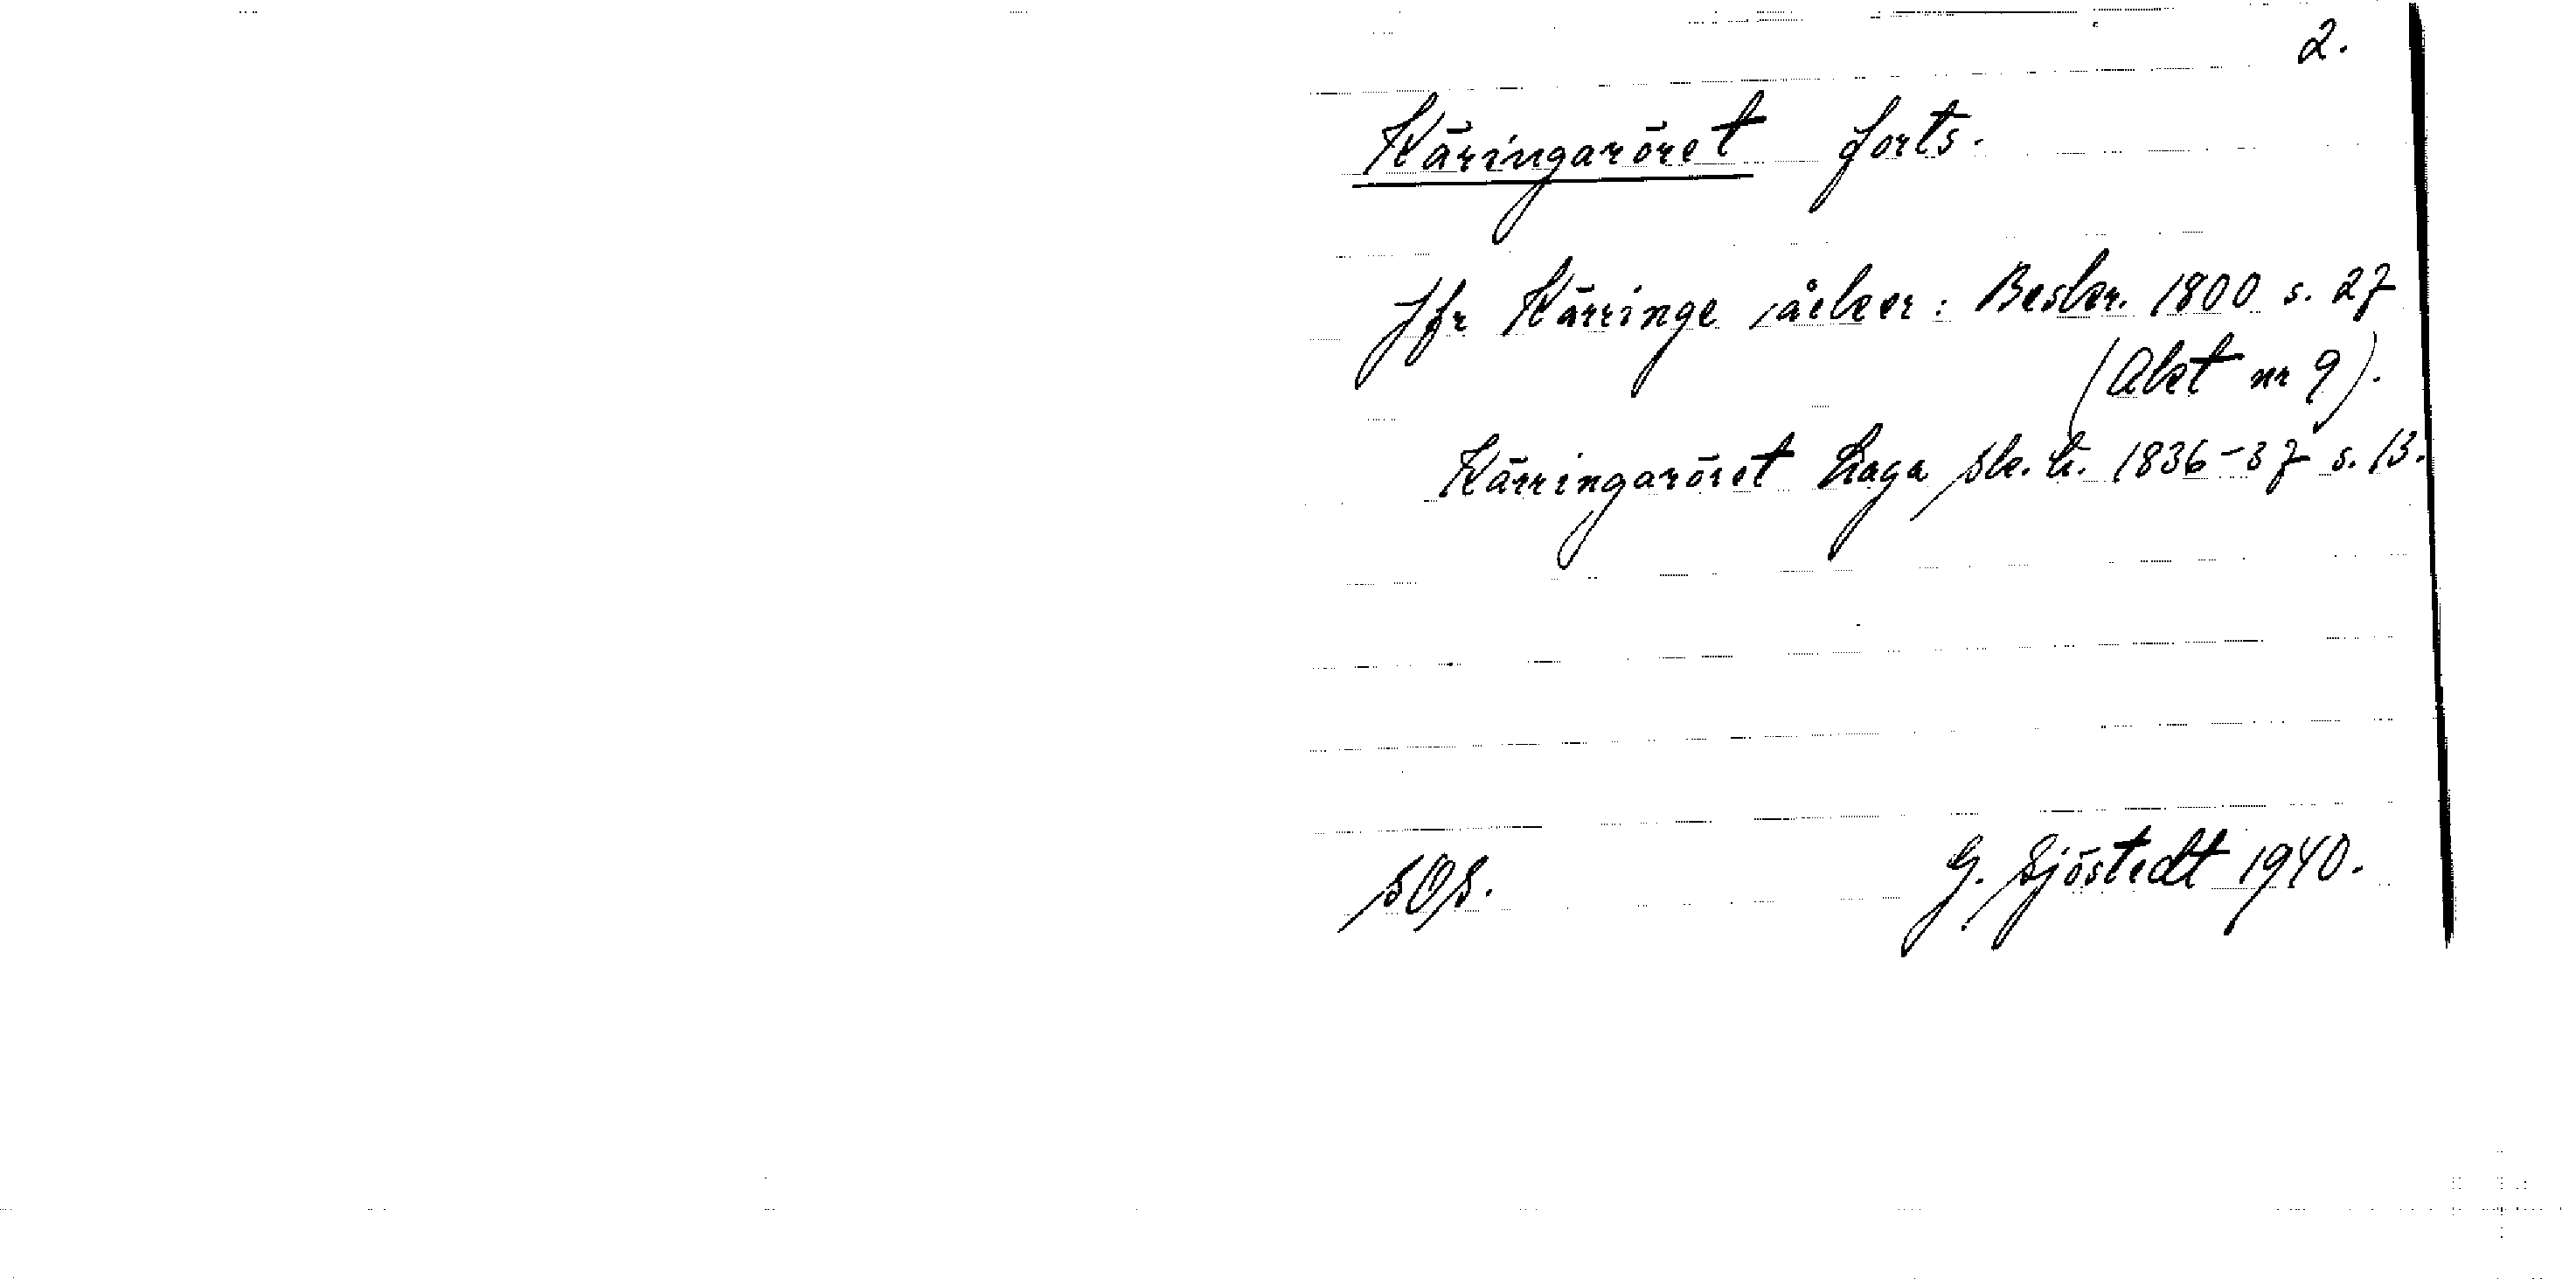 2.
Käringaröret forts.
Jfr Kärringe, åker: Beskr. 1800 s. 27
(Akt nr 9).
Kärringaröret Laga sk. h. 1836-37 s. 13.
SOS. G. Sjöstedt 1940.